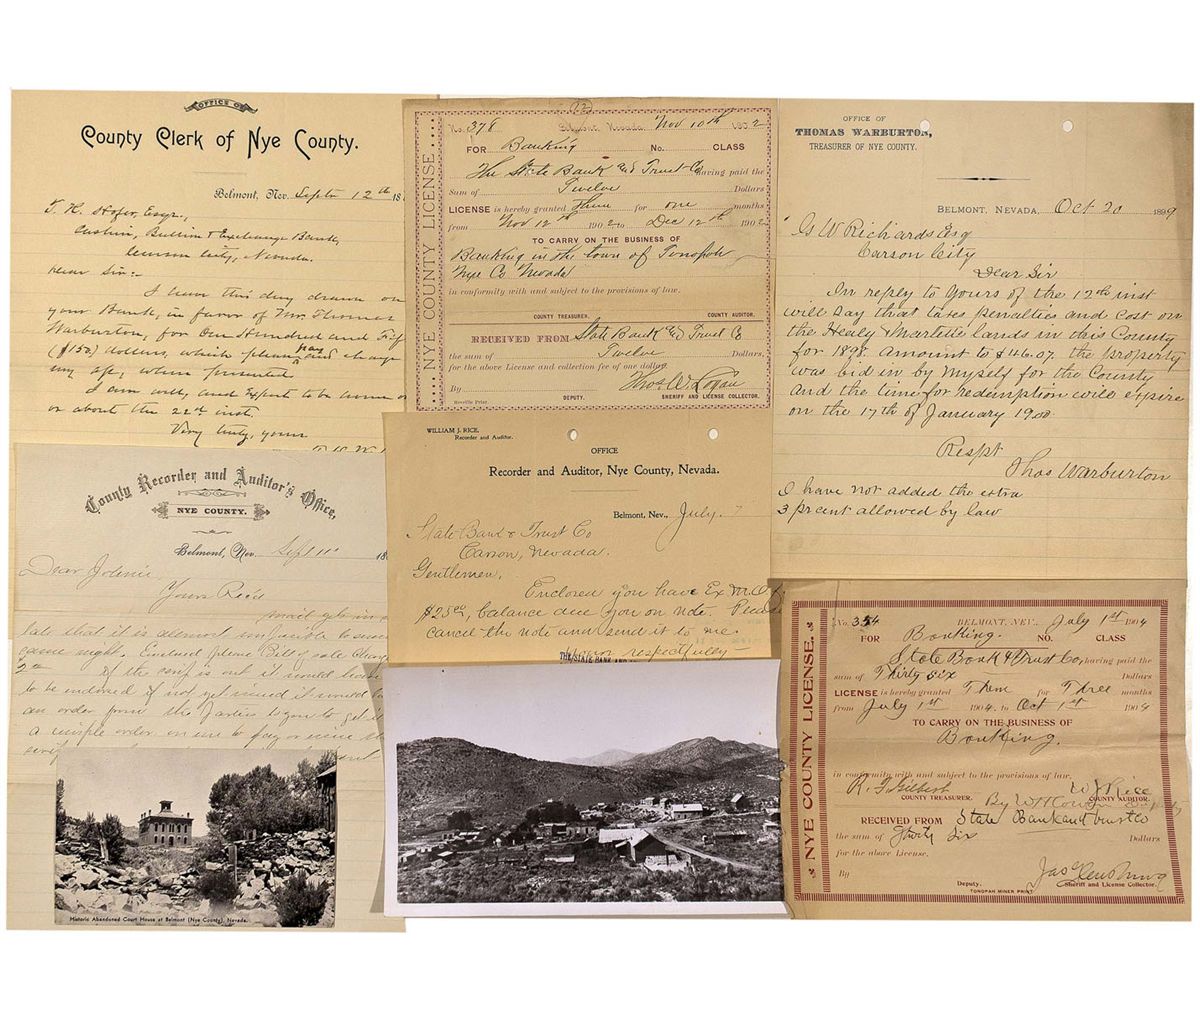 OFFICE OF
County Clerk of Nye County.
Belmont, Nev. Septr 12th 18
T. H. Hofer, Esqr.,
Cashier, Bullion & Exchange Bank,
Carson City, Nevada.
Dear Sir:-
I have this day drawn on
your Bank, in favor of Mr. Thomas
Warburton, for One Hundred and Fif
($150.) dollars, which please pay and charge
my a/c, when presented.
I am well, and expect to be home on
or about the 22nd inst.
Very truly, yours
County Recorder and Auditor's Office,
NYE COUNTY.
Belmont, Nev. Sept 11th 18
Dear
Yours Rec'd
mail gets in
late that it is almost impossible to
same night. Enclosed please Bill of sale Charge
of the scrip is out it would have
to be endorsed if not yet issued it would
an order from the parties to you to get it
a simple order in use to pay or issue the
Historic Abandoned Court House at Belmont (Nye County), Nevada.
NYE COUNTY LICENSE.
No. 378 Belmont, Nevada. Nov 10th 1902
FOR Banking No. CLASS
The State Bank and Trust Co having paid the
Sum of Twelve Dollars
LICENSE is hereby granted them for one months
from Nov 12th 1902 to Dec 12th 1902
TO CARRY ON THE BUSINESS OF
Banking in the town of Tonopah
Nye Co Nevada
in conformity with and subject to the provisions of law.
COUNTY TREASURER. COUNTY AUDITOR.
RECEIVED FROM State Bank and Trust Co
the sum of Twelve Dollars.
for the above License and collection fee of one dollar.
By Thos. W. Logan
DEPUTY. SHERIFF AND LICENSE COLLECTOR.
Reveille Print.
WILLIAM J. RICE,
Recorder and Auditor.
OFFICE
Recorder and Auditor, Nye County, Nevada.
Belmont, Nev., July 7
State Bank & Trust Co
Carson, Nevada.
Gentlemen,
Enclosed you have Ex M.O.
$25.00, balance due you on note. Please
cancel the note and send it to me.
respectfully
THE STATE BANK AND
OFFICE OF
THOMAS WARBURTON,
TREASURER OF NYE COUNTY.
BELMONT, NEVADA, Oct 20 1899
G W Richards Esq
Carson City
Dear Sir
In reply to yours of the 12th inst
will say that taxes penalties and cost on
the Healy & Martelle lands in this County
for 1898. amount to $46.07. the property
was bid in by myself for the County
and the time for redemption will expire
on the 17th of January 1900
Respt
Thos Warburton
I have not added the extra
3 pr cent allowed by law
NYE COUNTY LICENSE.
No. 354 BELMONT, NEV., July 1st 1904
FOR Banking. NO. CLASS
State Bank & Trust Co, having paid the
sum of Thirty six Dollars
LICENSE is hereby granted Them for Three months
from July 1st 1904. to Oct 1st 1904
TO CARRY ON THE BUSINESS OF
Banking.
in conformity with and subject to the provisions of law.
R. F. Gilbert W J Rice
COUNTY TREASURER. By COUNTY AUDITOR. Deputy
RECEIVED FROM State Bank and trust co
the sum of thirty Six Dollars
for the above License.
By
Deputy. Sheriff and License Collector.
TONOPAH MINER PRINT